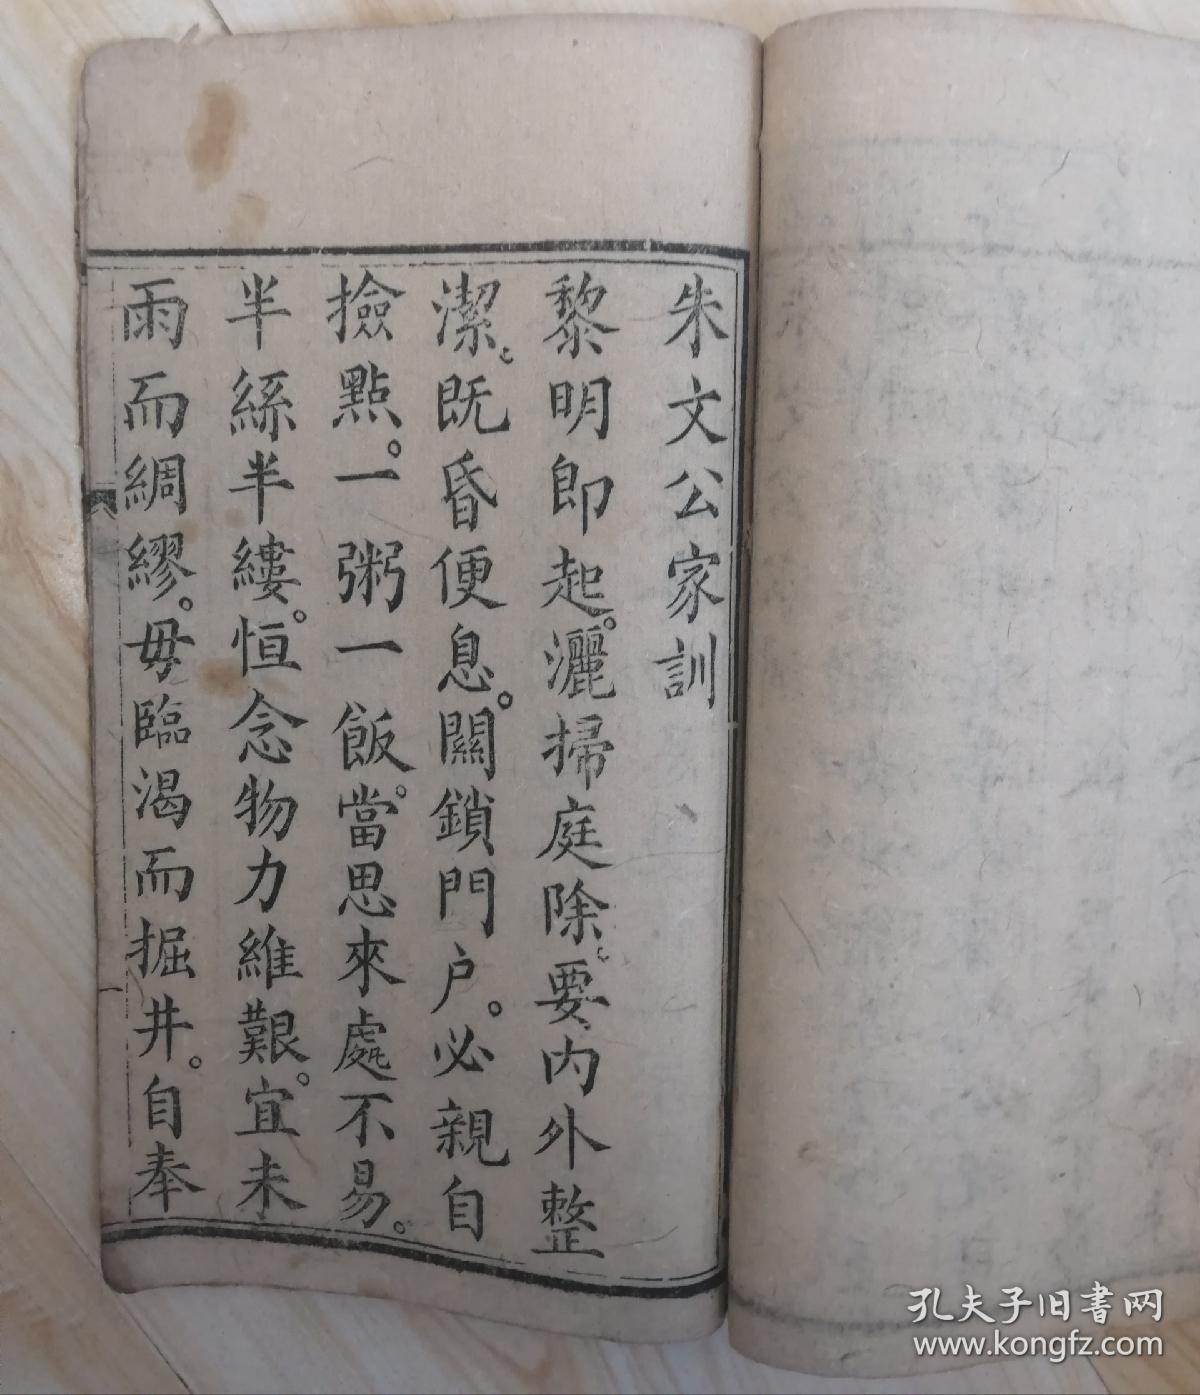 朱文公家訓
黎明即起。灑掃庭除。要、內外整
潔。既昏便息。關鎖門户。必親自
撿點。一粥一飯。當思來處不易。
半絲半縷。恒念物力維艱。宜未
雨而綢繆。毋臨渴而掘井。自奉
一
孔夫子旧書网
www.kongfz.com